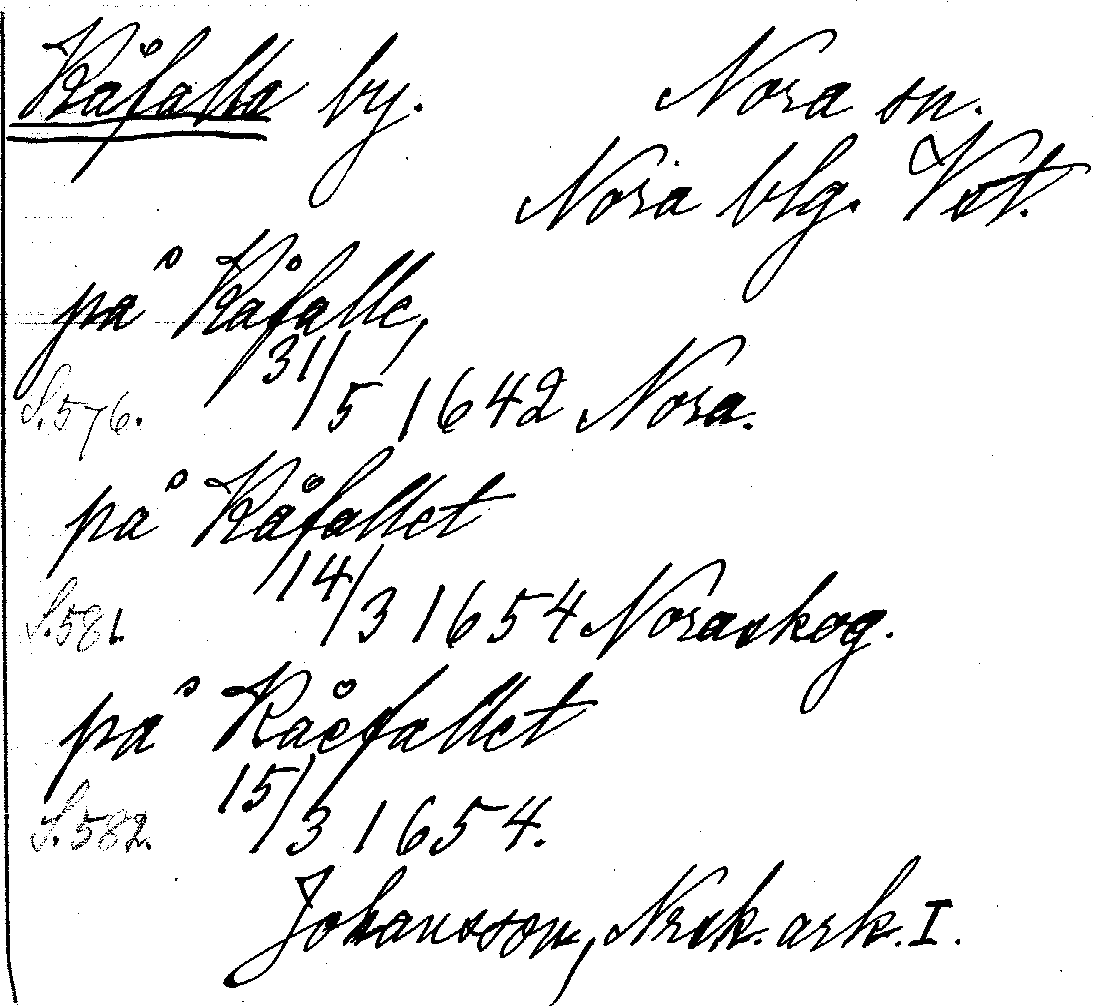 Kåfalla by. Nora sn.
Nora blg. Vst.
på Kåfalle,
S.576. 31/5 1642 Nora.
på Kåfallet
S.581. 14/3 1654 Noraskog.
på Kåefallet
S.582. 15/3 1654.
Johansson, Nrsk. ark. I.